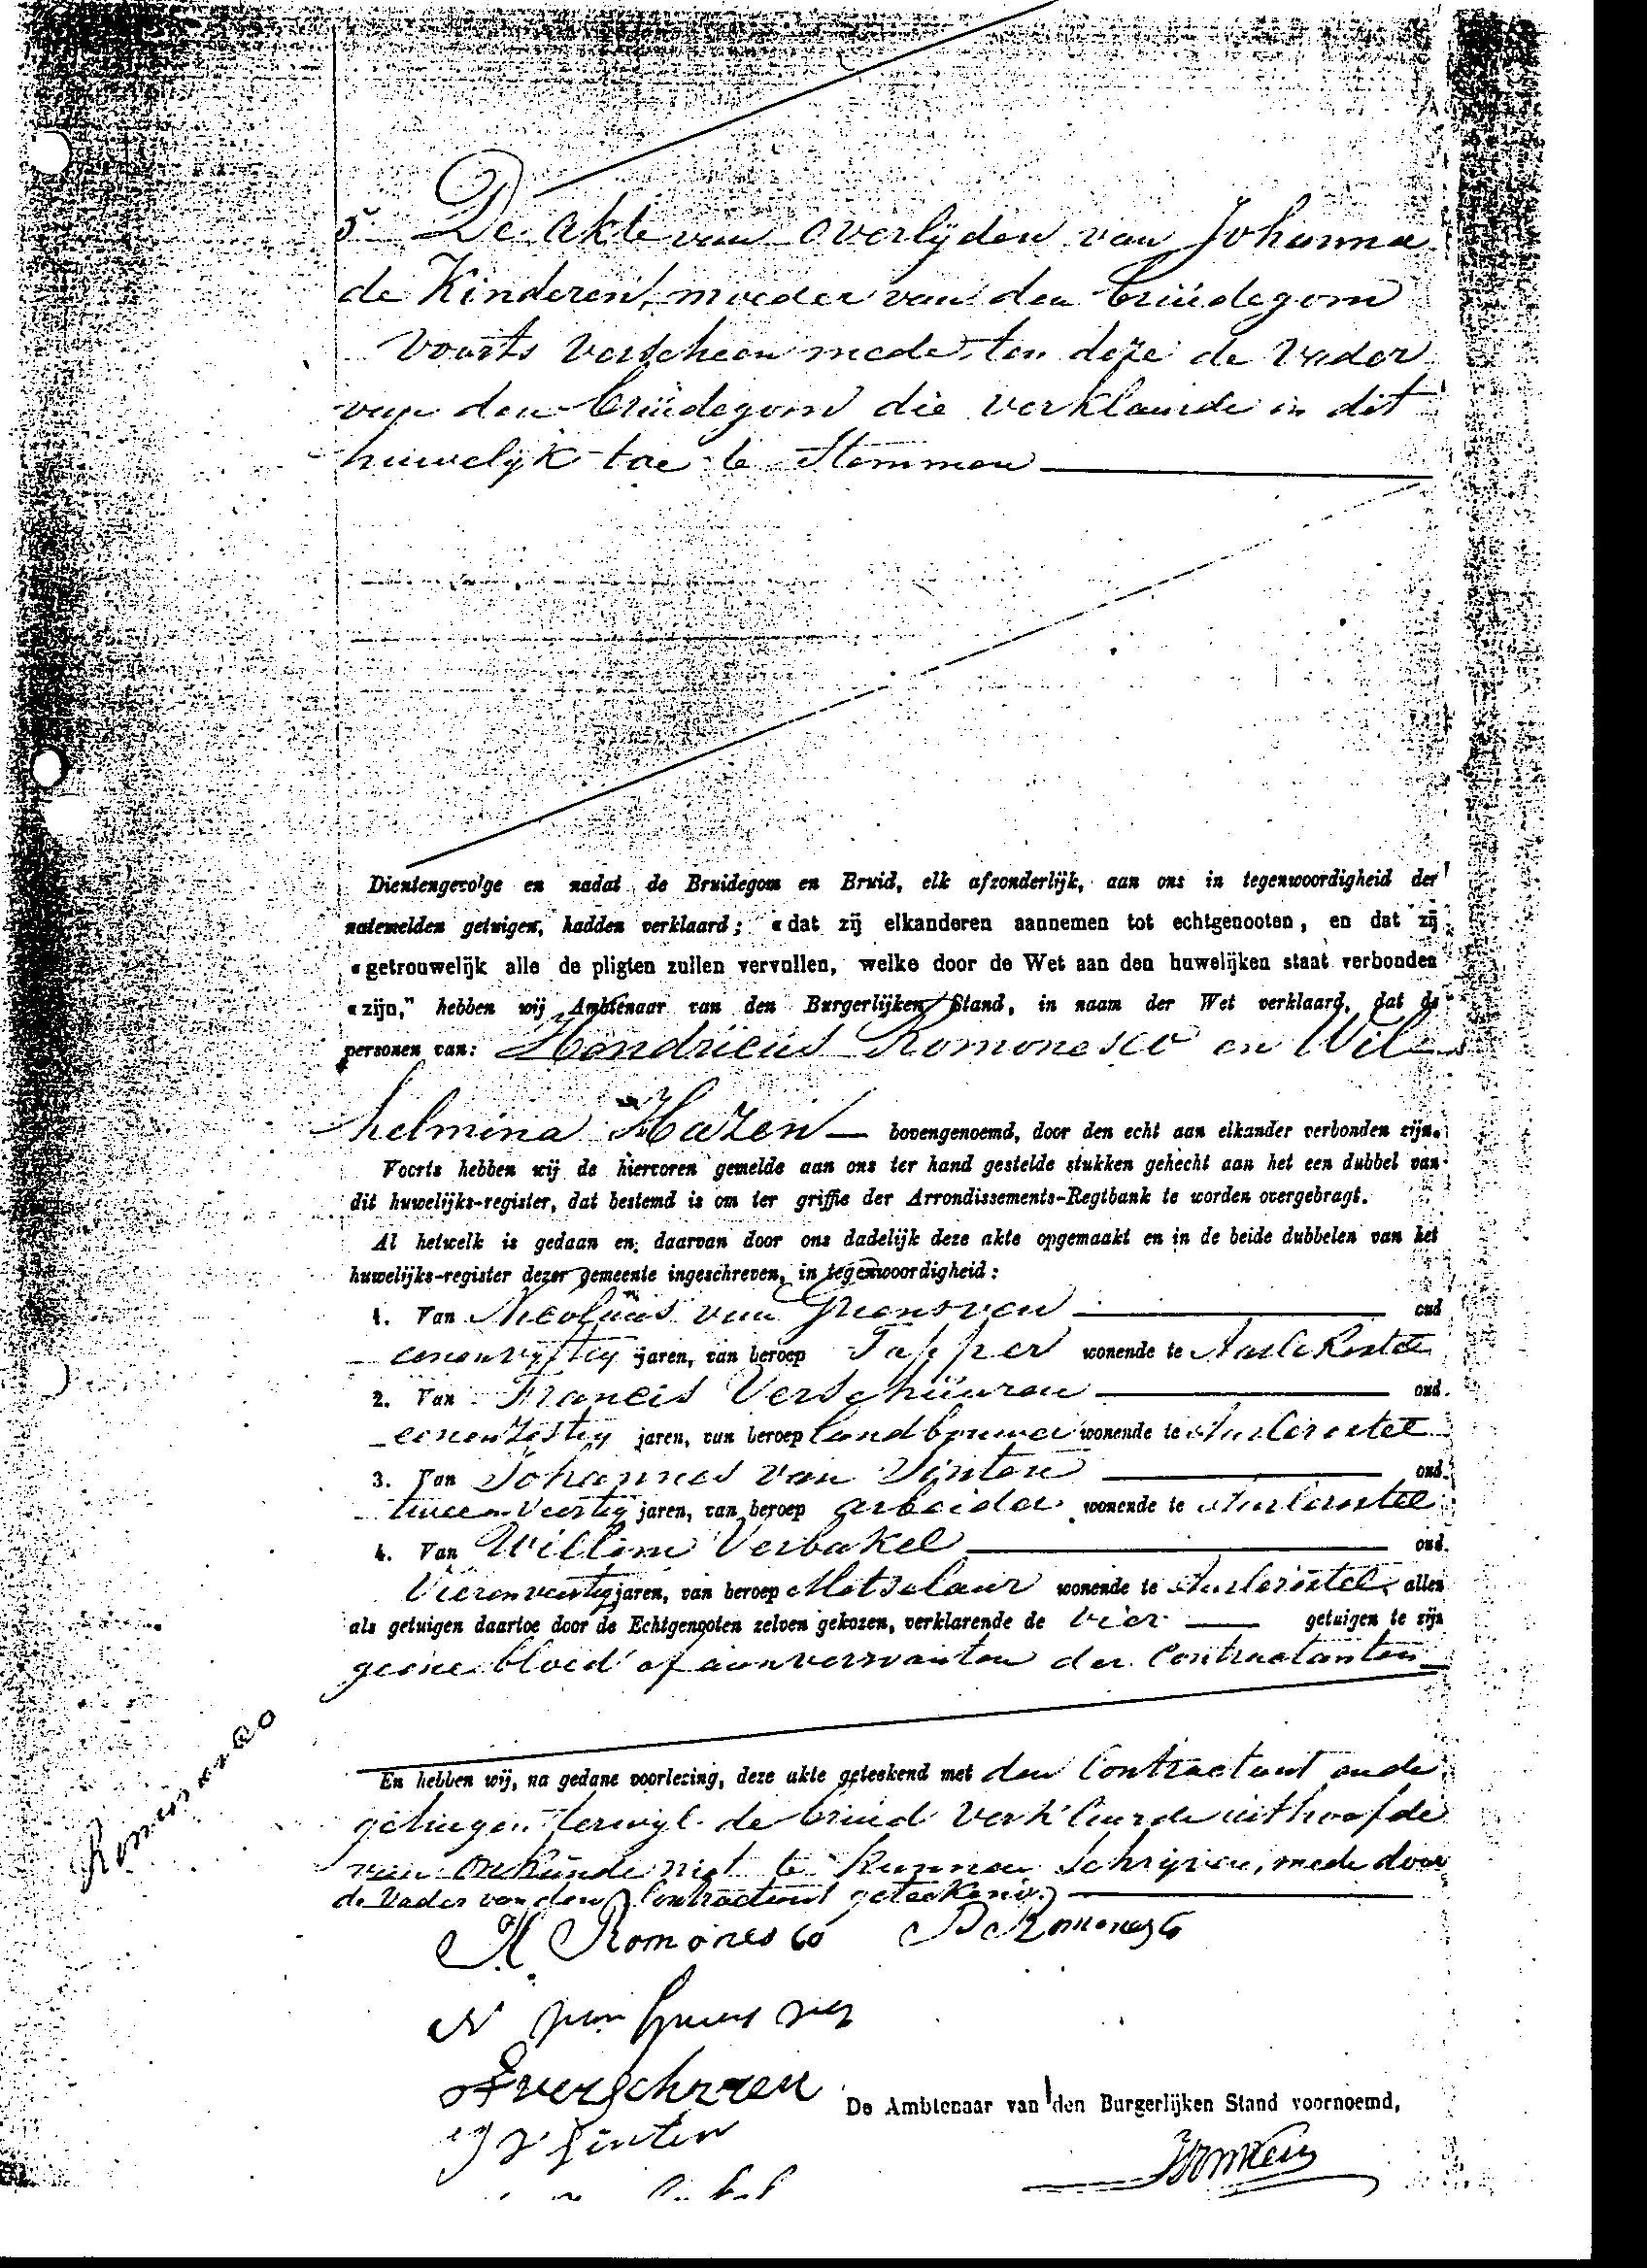 5 De akte van overlijden van Johanna
de Kinderen, moeder van den bruidegom
Voorts verscheen mede ten deze de vader
van den bruidegom die verklaarde in dit
huwelijk toe te Stemmen
Dientengevolge en nadat de Bruidegom en Bruid, elk afzonderlijk, aan ons in tegenwoordigheid der
natemelden getuigen, hadden verklaard; «dat zij elkanderen aannemen tot echtgenooten, en dat zij
«getrouwelijk alle de pligten zullen vervullen, welke door de Wet aan den huwelijken staat verbonden
«zijn," hebben wij Ambtenaar van den Burgerlijken Stand, in naam der Wet verklaard, dat de
personen van: Hendricus Romonesco en Wil
helmina Hazen bovengenoemd, door den echt aan elkander verbonden zijn.
Voorts hebben wij de hiervoren gemelde aan ons ter hand gestelde stukken gehecht aan het een dubbel van
dit huwelijks-register, dat bestemd is om ter griffie der Arrondissements-Regtbank te worden overgebragt.
Al hetwelk is gedaan en daarvan door ons dadelijk deze akte opgemaakt en in de beide dubbelen van het
huwelijks-register dezer gemeente ingeschreven, in tegenwoordigheid:
1. Van Nicolaas van Griensven oud
eenenvijftig jaren, van beroep Tapper wonende te Aarlerixtel
2. Van Francis Verschuuren oud
eenenzestig jaren, van beroep landbouwer wonende te Aarlerixtel
3. Van Johannes van Sinten oud
tweeenveertig jaren, van beroep arbeider wonende te Aarlerixtel
4. Van Willem Verbakel oud
Vierenveertig jaren, van beroep Metselaar wonende te Aarlerixtel allen
als getuigen daartoe door de Echtgenooten zelven gekozen, verklarende de vier getuigen te zijn
geene bloed of aanverwanten der Contractanten
En hebben wij, na gedane voorlezing, deze akte geteekend met den Contractant en de
getuigen terwijl de bruid verklaarde uit hoofde
van onkunde niet te kunnen Schrijven, mede door
de Vader van den Contractant geteekend.
H Romonesco Romonesco
N van
F verschuren
De Ambtenaar van den Burgerlijken Stand voornoemd,